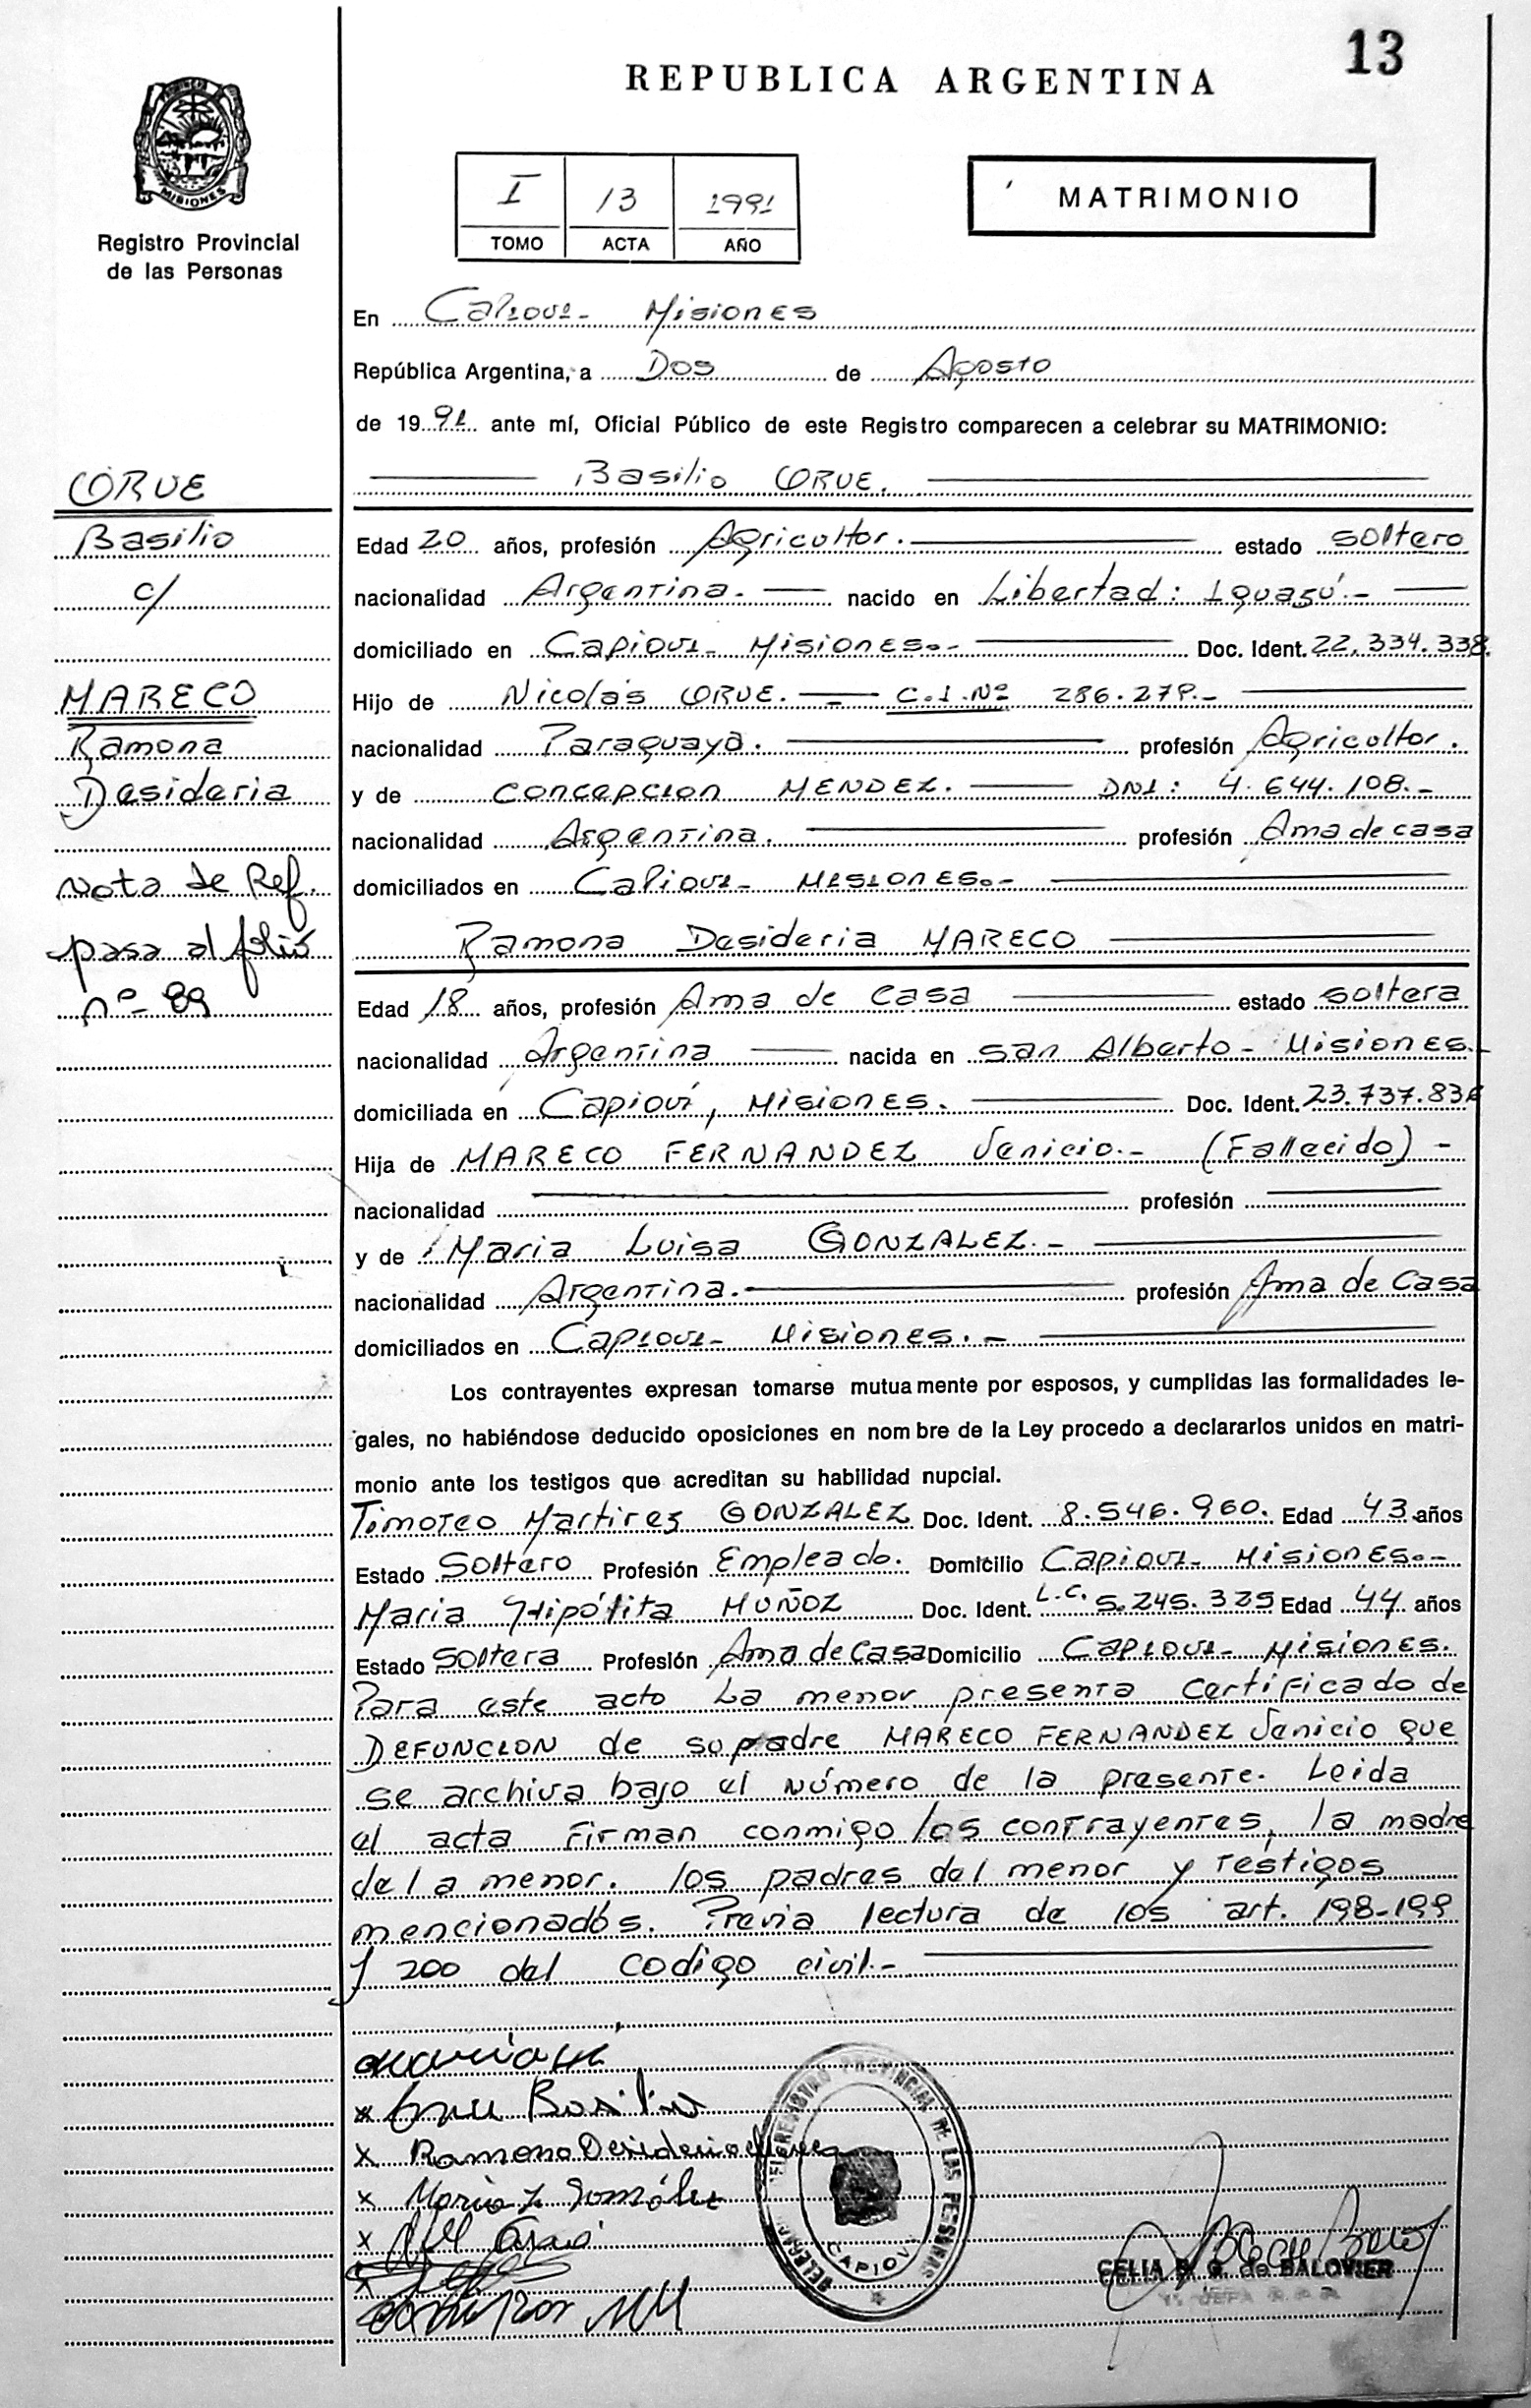 13
REPUBLICA ARGENTINA
MISIONES
Registro Provincial
de las Personas
I 13 1991
TOMO ACTA AÑO
MATRIMONIO
En Capiovi- Misiones
República Argentina, a Dos de Agosto
de 1991 ante mí, Oficial Público de este Registro comparecen a celebrar su MATRIMONIO:
ORUE
Basilio
c/
MARECO
Ramona
Desideria
Nota de Ref.
pasa al folio
nº- 89
Basilio ORUE.
Edad 20 años, profesión Agricultor. estado soltero
nacionalidad Argentina. nacido en Libertad: Iguasú.-
domiciliado en Capiovi- Misiones.- Doc. Ident. 22.334.338.
Hijo de Nicolás ORUE. - C.I.Nº 286.279.-
nacionalidad Paraguaya. profesión Agricultor.
y de CONCEPCION MENDEZ. DNI: 4.644.108.-
nacionalidad Argentina. profesión Ama de casa
domiciliados en Capiovi- MISIONES.-
Ramona Desideria MARECO
Edad 18 años, profesión Ama de casa estado soltera
nacionalidad Argentina nacida en San Alberto- Misiones.-
domiciliada en Capioví, Misiones. Doc. Ident. 23.737.83
Hija de MARECO FERNANDEZ Venicio.- (Fallecido) -
nacionalidad profesión
y de Maria Luisa GONZALEZ.-
nacionalidad Argentina. profesión Ama de Casa
domiciliados en Capiovi- Misiones.-
Los contrayentes expresan tomarse mutuamente por esposos, y cumplidas las formalidades le-
gales, no habiéndose deducido oposiciones en nombre de la Ley procedo a declararlos unidos en matri-
monio ante los testigos que acreditan su habilidad nupcial.
Timoteo Martires GONZALEZ Doc. Ident. 8.546.960. Edad 43 años
Estado Soltero Profesión Empleado. Domicilio Capiovi- Misiones.-
Maria Hipólita MUÑOZ Doc. Ident. L.C. 5.245.325 Edad 44 años
Estado Soltera Profesión Ama de Casa Domicilio Capiovi- Misiones.
Para este acto La menor presenta Certificado de
DEFUNCION de su padre MARECO FERNANDEZ Venicio que
se archiva bajo el número de la presente. Leida
el acta firman conmigo los contrayentes, la madre
de la menor. los padres del menor y testigos
mencionados. Previa lectura de los art. 198-199
y 200 del codigo civil.-
x Orue Basilio
x Ramona Desideria Mareco
x Maria L Gonzálex
x
x
DELEGA REGISTRO PROVINCIAL DE LAS PERSONAS
CAPIOVI
CELIA B. G. de BALOVIER